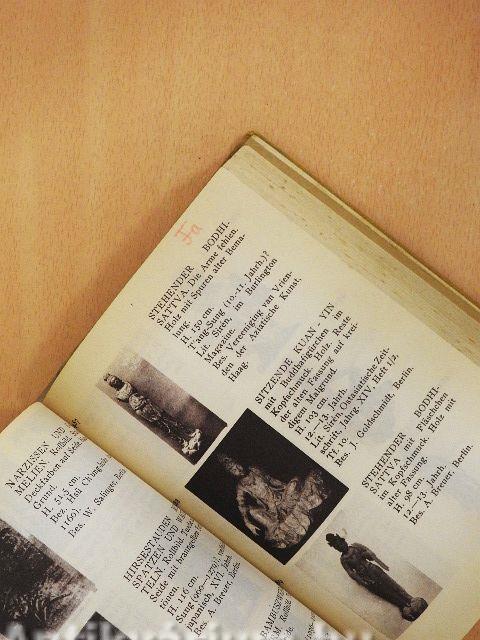 Fa
STEHENDER BODHI-
SATTVA. Die Arme fehlen.
Holz mit Spuren alter Bema-
lung.
H. 150 cm.
T'ang-Sung (10.-11. Jahrh.)?
Lit. Sirén, im Burlington
Magazine.
Bes. Vereeniging van Vrien-
den der Aziatische Kunst,
Haag.
SITZENDE KUAN-YIN
mit Buddhafigürchen im
Kopfschmuck. Holz. Reste
der alten Fassung auf krei-
digem Malgrund.
H. 103 cm.
12.-13. Jahrh.
Lit. Sirén, Ostasiatische Zeit-
schrift, Jahrg. XIV, Heft 1/2,
Tf. 10.
Bes. J. Goldschmidt, Berlin.
STEHENDER BODHI-
SATTVA mit Fläschchen
im Kopfschmuck. Holz mit
alter Fassung.
H. 98 cm.
12.-13. Jahrh.
Bes. A. Breuer, Berlin.
NARZISSEN UND
MELIEN. Rollbild.
Deckfarben auf Seide.
Grund.
Bes. W.
HIRSESTAUDEN
SPATZEN UND
TELN. Rollbild.
Seide mit
tönen.
H. 116 cm.
Sung (960-1279)
japanisch, XVI. Jahrh.
Bes. A. Breuer, Berlin
Rollbild.